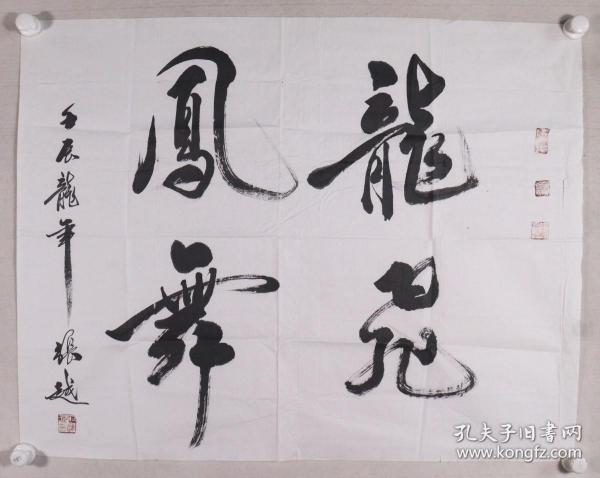 龍飛
鳳舞
壬辰龍年 張越
孔夫子旧书网
www.kongfz.com